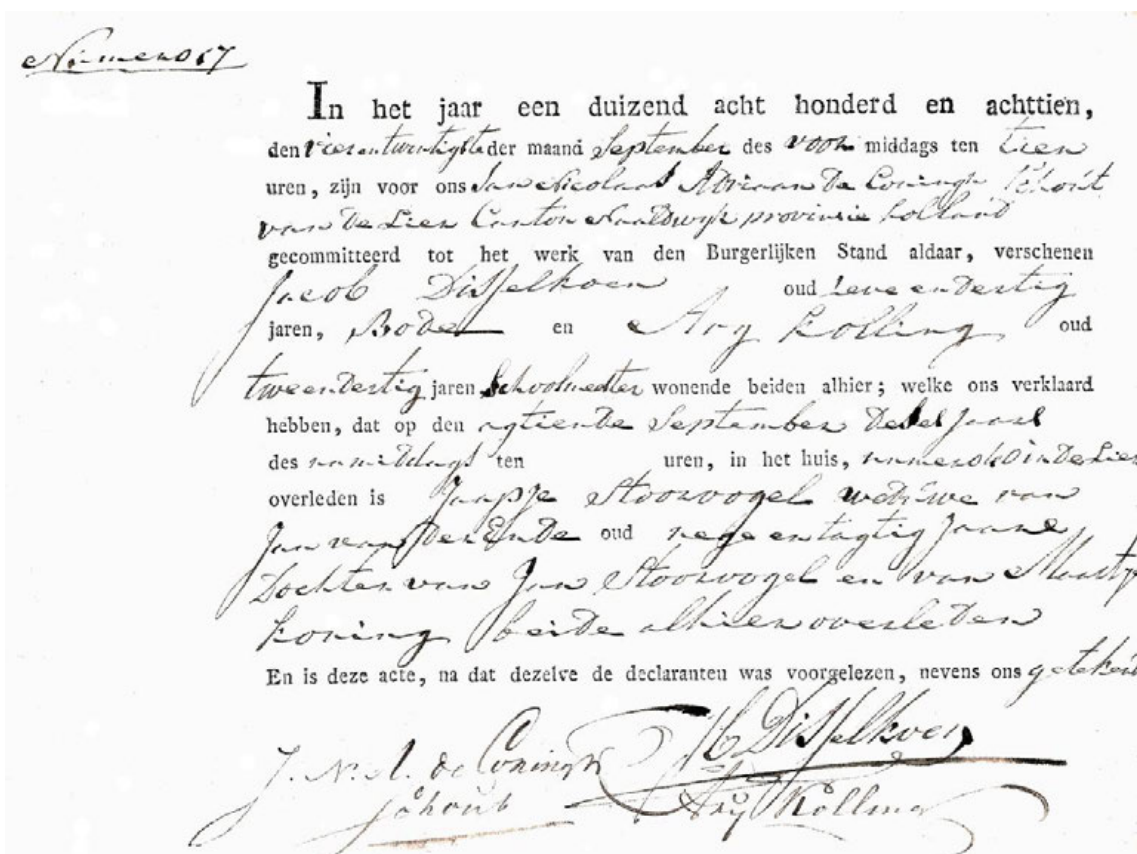 Numero 17
In het jaar een duizend acht honderd en achttien,
den vierentwintigste der maand September des voor middags ten tien
uren, zijn voor ons Jan Nicolaas Adriaan De Coningh Schout
van De Lier Canton Naaldwyk provinsie holland
gecommitteerd tot het werk van den Burgerlijken Stand aldaar, verschenen
Jacob Disselkoen oud seve endertig
jaren, Bode en Ary Kolling oud
tweendertig jaren Schoolmeester wonende beiden alhier; welke ons verklaard
hebben, dat op den agtiende September deses jaars
des namiddags ten uren, in het huis, in De Lier
overleden is Jaapje Stoorvogel weduwe van
Jan van Der Ende oud nege entagtig jaare
Dochter van Jan Stoorvogel en van Maartje
Koning beide alhier overleden
En is deze acte, na dat dezelve de declaranten was voorgelezen, nevens ons getekent
J. N. A. de Coningh Disselkoen
Schout Arij Kolling